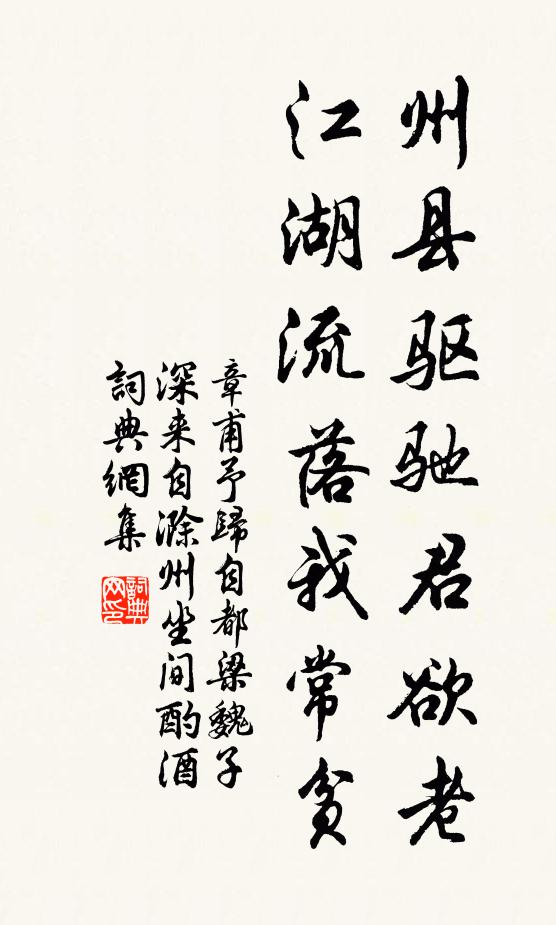 州县驱驰君欲老
江湖流落我常贫
章甫予歸自都梁魏子
深来自滁州坐间酌酒
詞典網集
詞典
网印